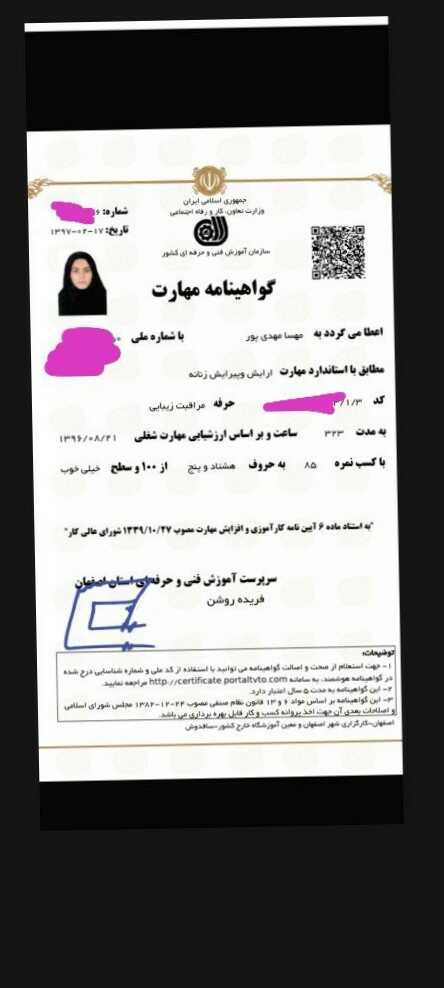 جمهوری اسلامی ایران
وزارت تعاون، کار و رفاه اجتماعی
سازمان آموزش فنی و حرفه ای کشور
شماره:
تاریخ: ۱۳۹۷-۰۴-۱۷
گواهینامه مهارت
اعطا می گردد به مهسا مهدی پور با شماره ملی
مطابق با استاندارد مهارت ارایش وپیرایش زنانه
کد ۳/۱/ حرفه مراقبت زیبایی
به مدت ۳۲۳ ساعت و بر اساس ارزشیابی مهارت شغلی ۱۳۹۶/۰۸/۲۱
با کسب نمره ۸۵ به حروف هشتاد و پنج از ۱۰۰ و سطح خیلی خوب
"به استناد ماده ۶ آیین نامه کارآموزی و افزایش مهارت مصوب ۱۳۴۹/۱۰/۲۷ شورای عالی کار"
سرپرست آموزش فنی و حرفه‌ای استان اصفهان
فریده روشن
توضیحات:
۱- جهت استعلام از صحت و اصالت گواهینامه می توانید با استفاده از کد ملی و شماره شناسایی درج شده
در گواهینامه هوشمند، به سامانه http://certificate.portaltvto.com مراجعه نمایید.
۲- این گواهینامه به مدت ۵ سال اعتبار دارد.
۳- این گواهینامه بر اساس مواد ۶ و ۱۳ قانون نظام صنفی مصوب ۲۴-۱۲-۱۳۸۲ مجلس شورای اسلامی
و اصلاحات بعدی آن جهت اخذ پروانه کسب و کار قابل بهره برداری می باشد.
اصفهان-کارگزاری شهر اصفهان و معین آموزشگاه خارج کشور-سافدوش